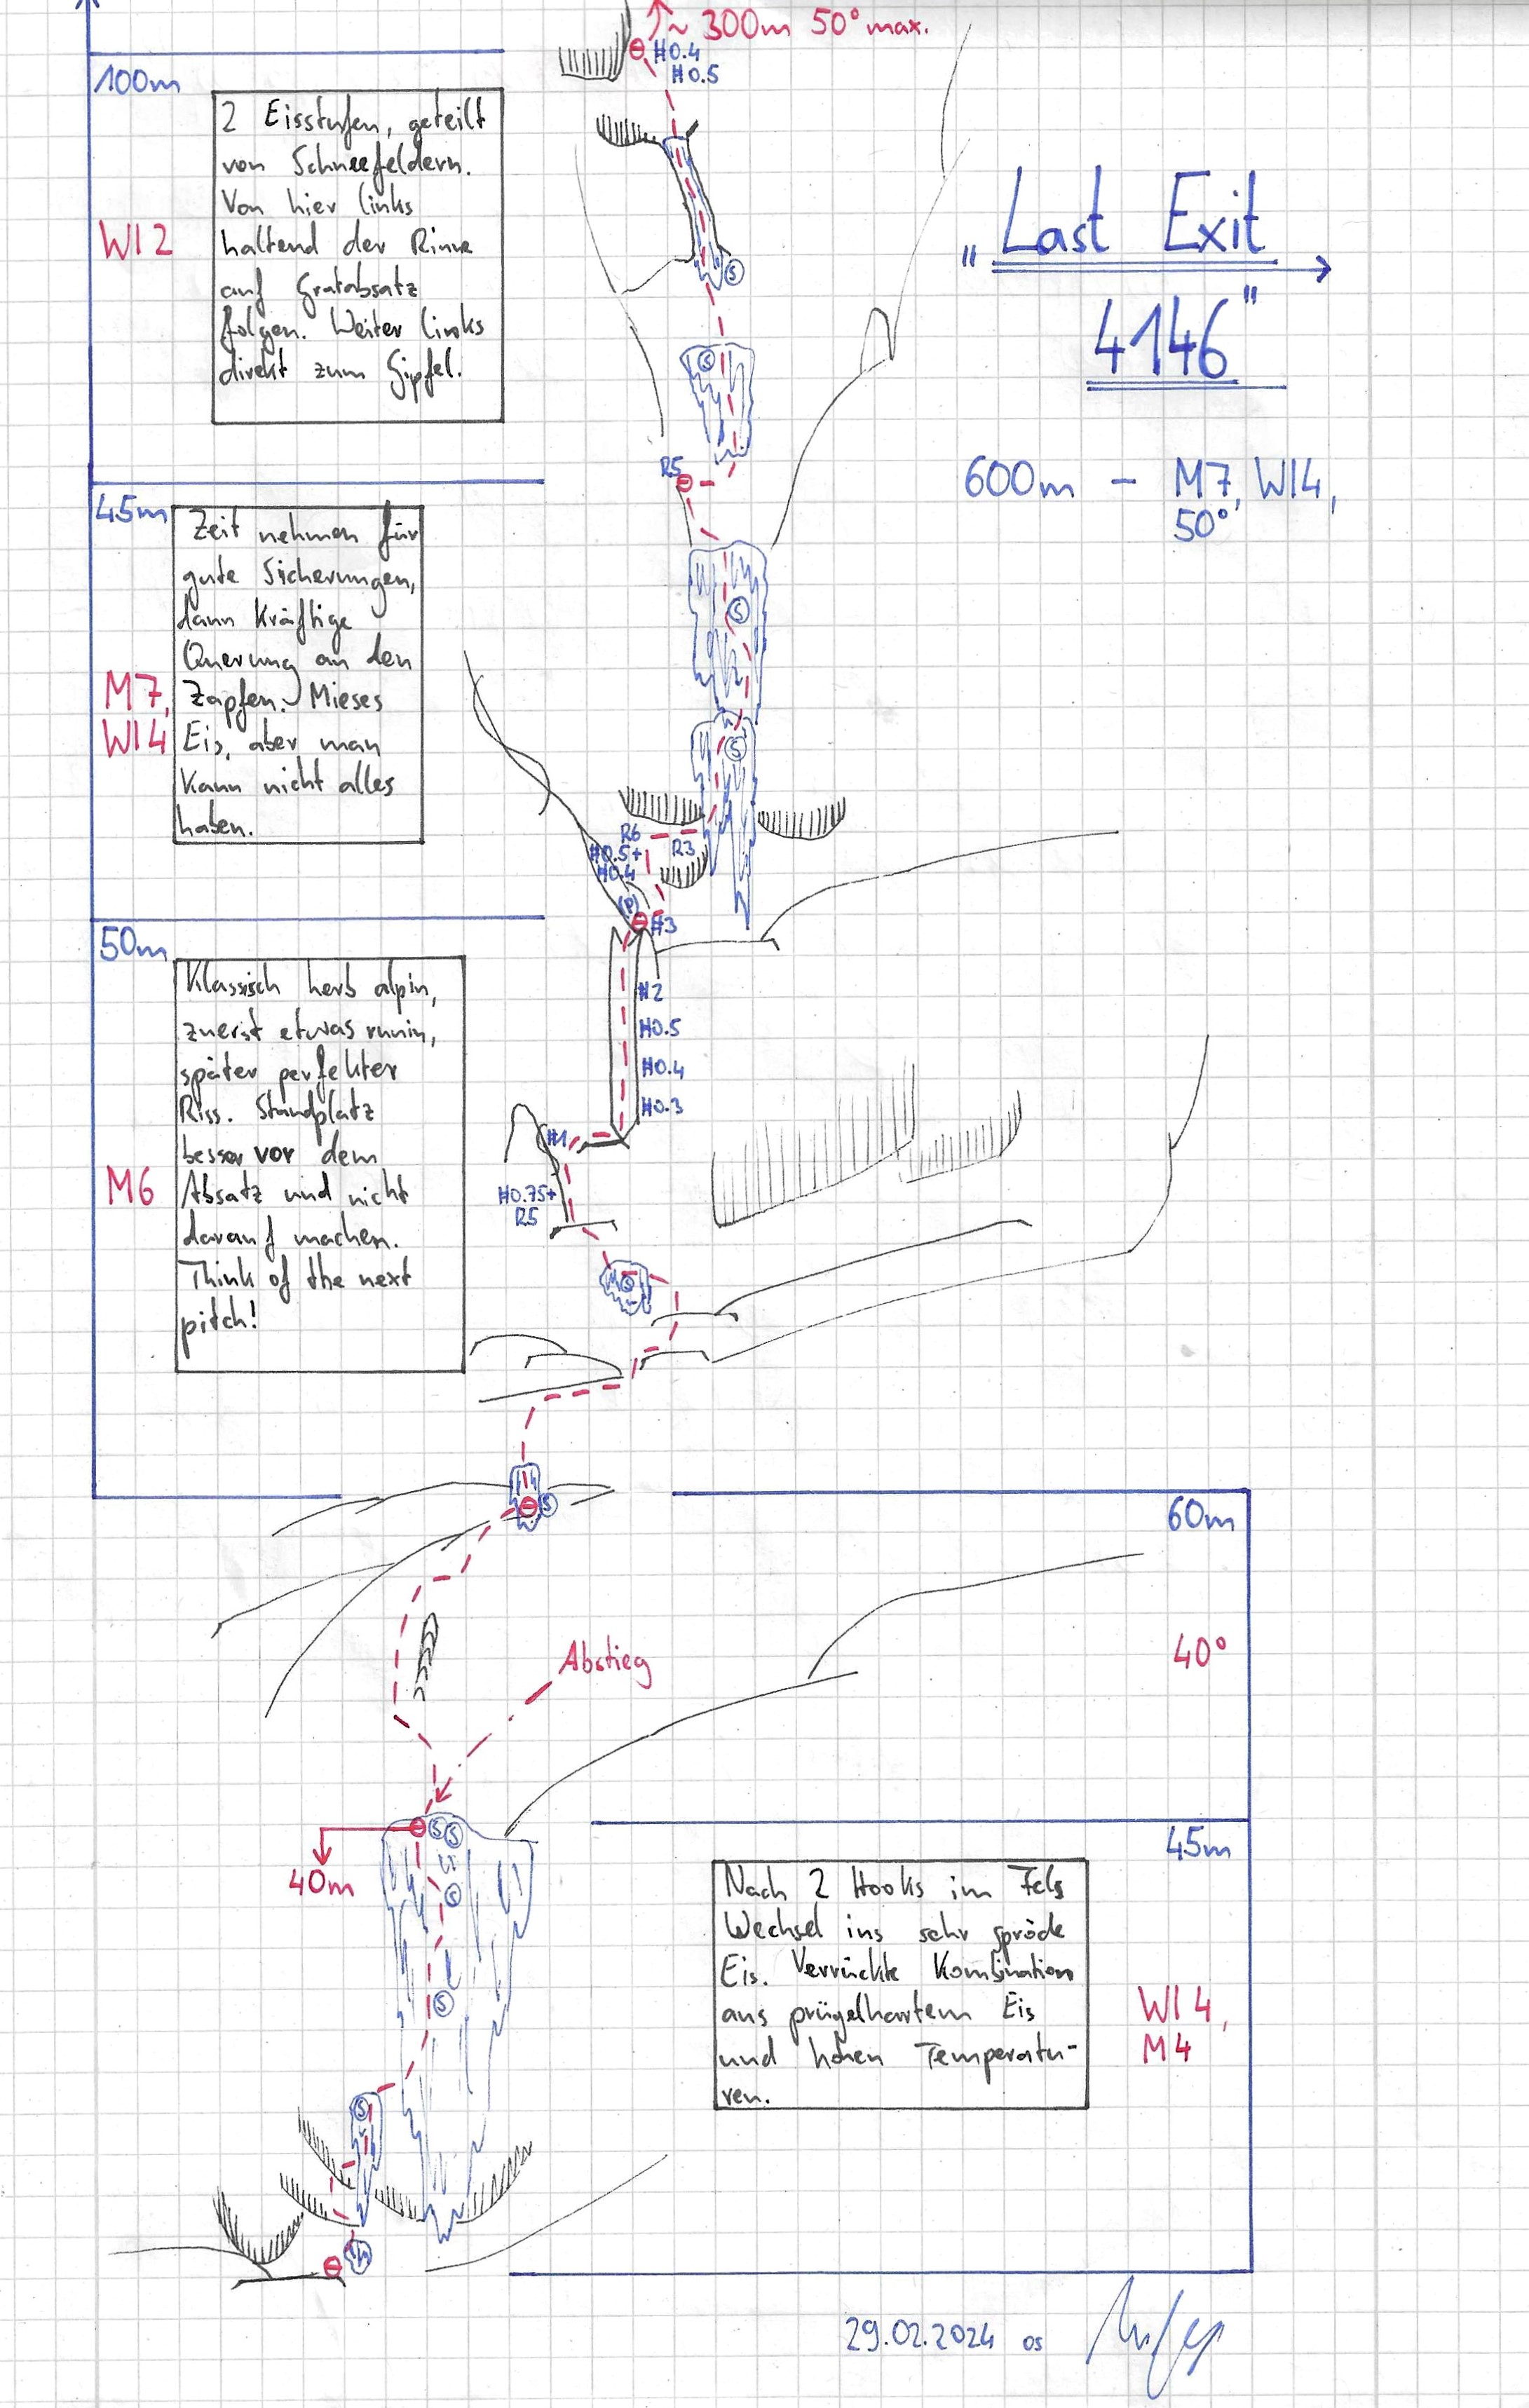 ~ 300m 50° max.
#0.4
#0.5
100m
2 Eisstufen, geteilt
von Schneefeldern.
Von hier links
haltend der Rinne
auf Gratabsatz
folgen. Weiter links
direkt zum Gipfel.
WI2
S
„Last Exit
4146"
600m - M7, WI4,
50°
S
R5
45m
Zeit nehmen für
gute Sicherungen,
dann kräftige
Querung an den
Zapfen. Mieses
Eis, aber man
kann nicht alles
haben.
M7,
WI4
S
S
R6
R3
#0.5+
#0.4
(P)
#3
50m
Klassisch herb alpin,
zuerst etwas runin,
später perfekter
Riss. Standplatz
besser vor dem
Absatz und nicht
darauf machen.
Think of the next
pitch!
M6
#2
#0.5
#0.4
#0.3
#1
#0.75+
R5
S
S
60m
40°
Abstieg
S S
40m
S
S
45m
Nach 2 Hooks im Fels
Wechsel ins sehr spröde
Eis. Verrückte Kombination
aus prügelhartem Eis
und hohen Temperatu-
ren.
WI4,
M4
S
29.02.2024 os